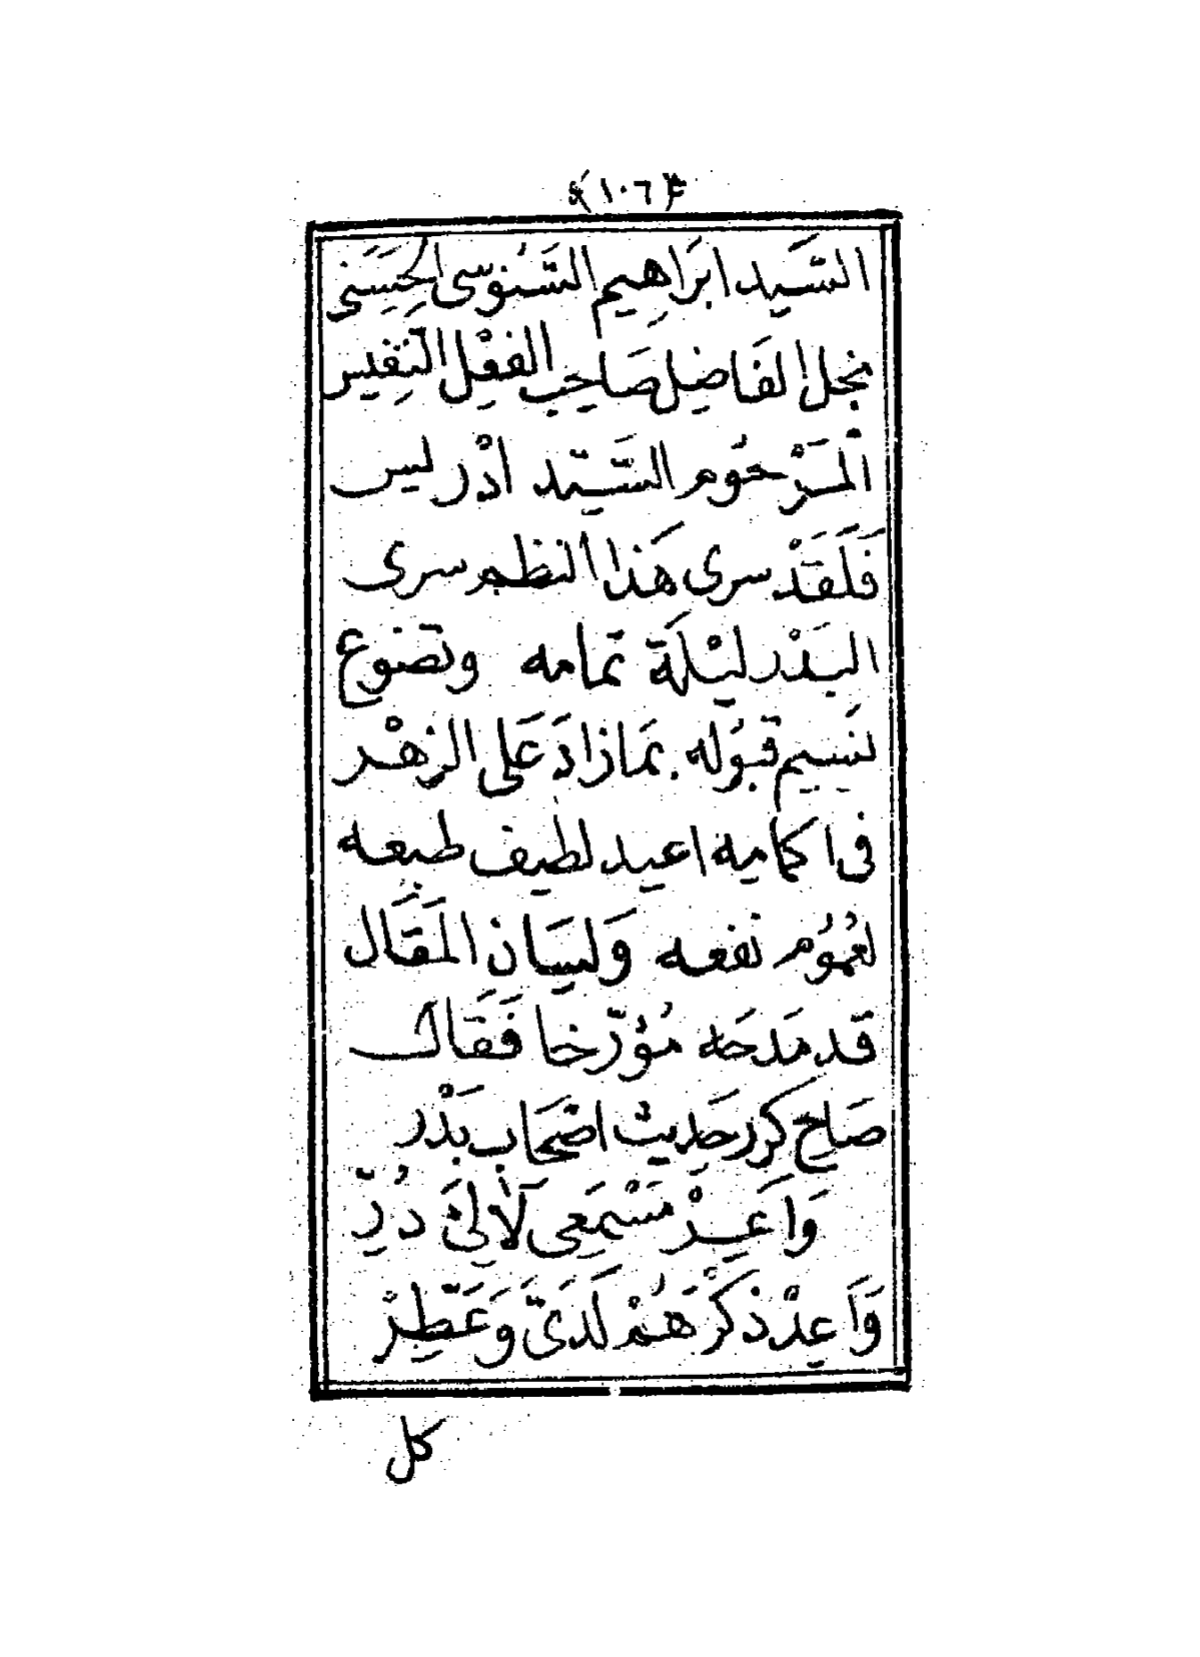 ﴿١٠٦﴾
السَّيِد ابرَاهِيم السَّنُوسى الحَِسَنى
نجل الفَاضِل صَاحِب الفِعْل النَّفِيس
الْمَرْحُوم السَّيِّد ادْريس
فَلَقَدْ سرى هَذا النظم سرى
البَدْر ليْلَة تمامه وتضوع
نَسِيم قبُوله بمَا زادَ عَلى الزهْر
فى اكمامِه اعيد لطيف طبعه
لعُمُوم نفعه وَلِسَان المَقَال
قد مَدحَه مُؤرّخا فَقَال
صَاحِ كرر حَدِيث اصْحَاب بَدْر
وَاَعِرْ مَسْمَعِى لآلِئَ دُرِّ
وَاَعِدْ ذكْرَهُمْ لَدَىَّ وَعَطِّرْ
كل